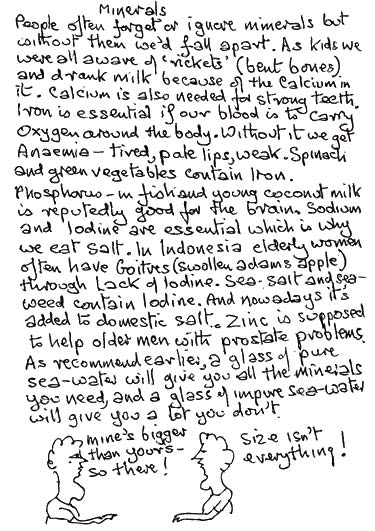 Minerals
People often forget or ignore minerals but
without them we'd fall apart. As kids we
were all aware of 'rickets' (bent bones)
and drank milk because of the Calcium in
it. Calcium is also needed for strong teeth.
Iron is essential if our blood is to carry
Oxygen around the body. Without it we get
Anaemia - tired, pale lips, weak. Spinach
and green vegetables contain Iron.
Phosphorus - in fish and young coconut milk
is reputedly good for the brain. Sodium
and Iodine are essential which is why
we eat salt. In Indonesia elderly women
often have Goitres (swollen adams apple)
through Lack of Iodine. Sea-salt and sea-
weed contain Iodine. And nowadays it's
added to domestic salt. Zinc is supposed
to help older men with prostate problems.
As recommend earlier, a glass of pure
sea-water will give you all the minerals
you need, and a glass of impure sea-water
will give you a lot you don't.
mine's bigger
than yours -
so there!
size isn't
everything!